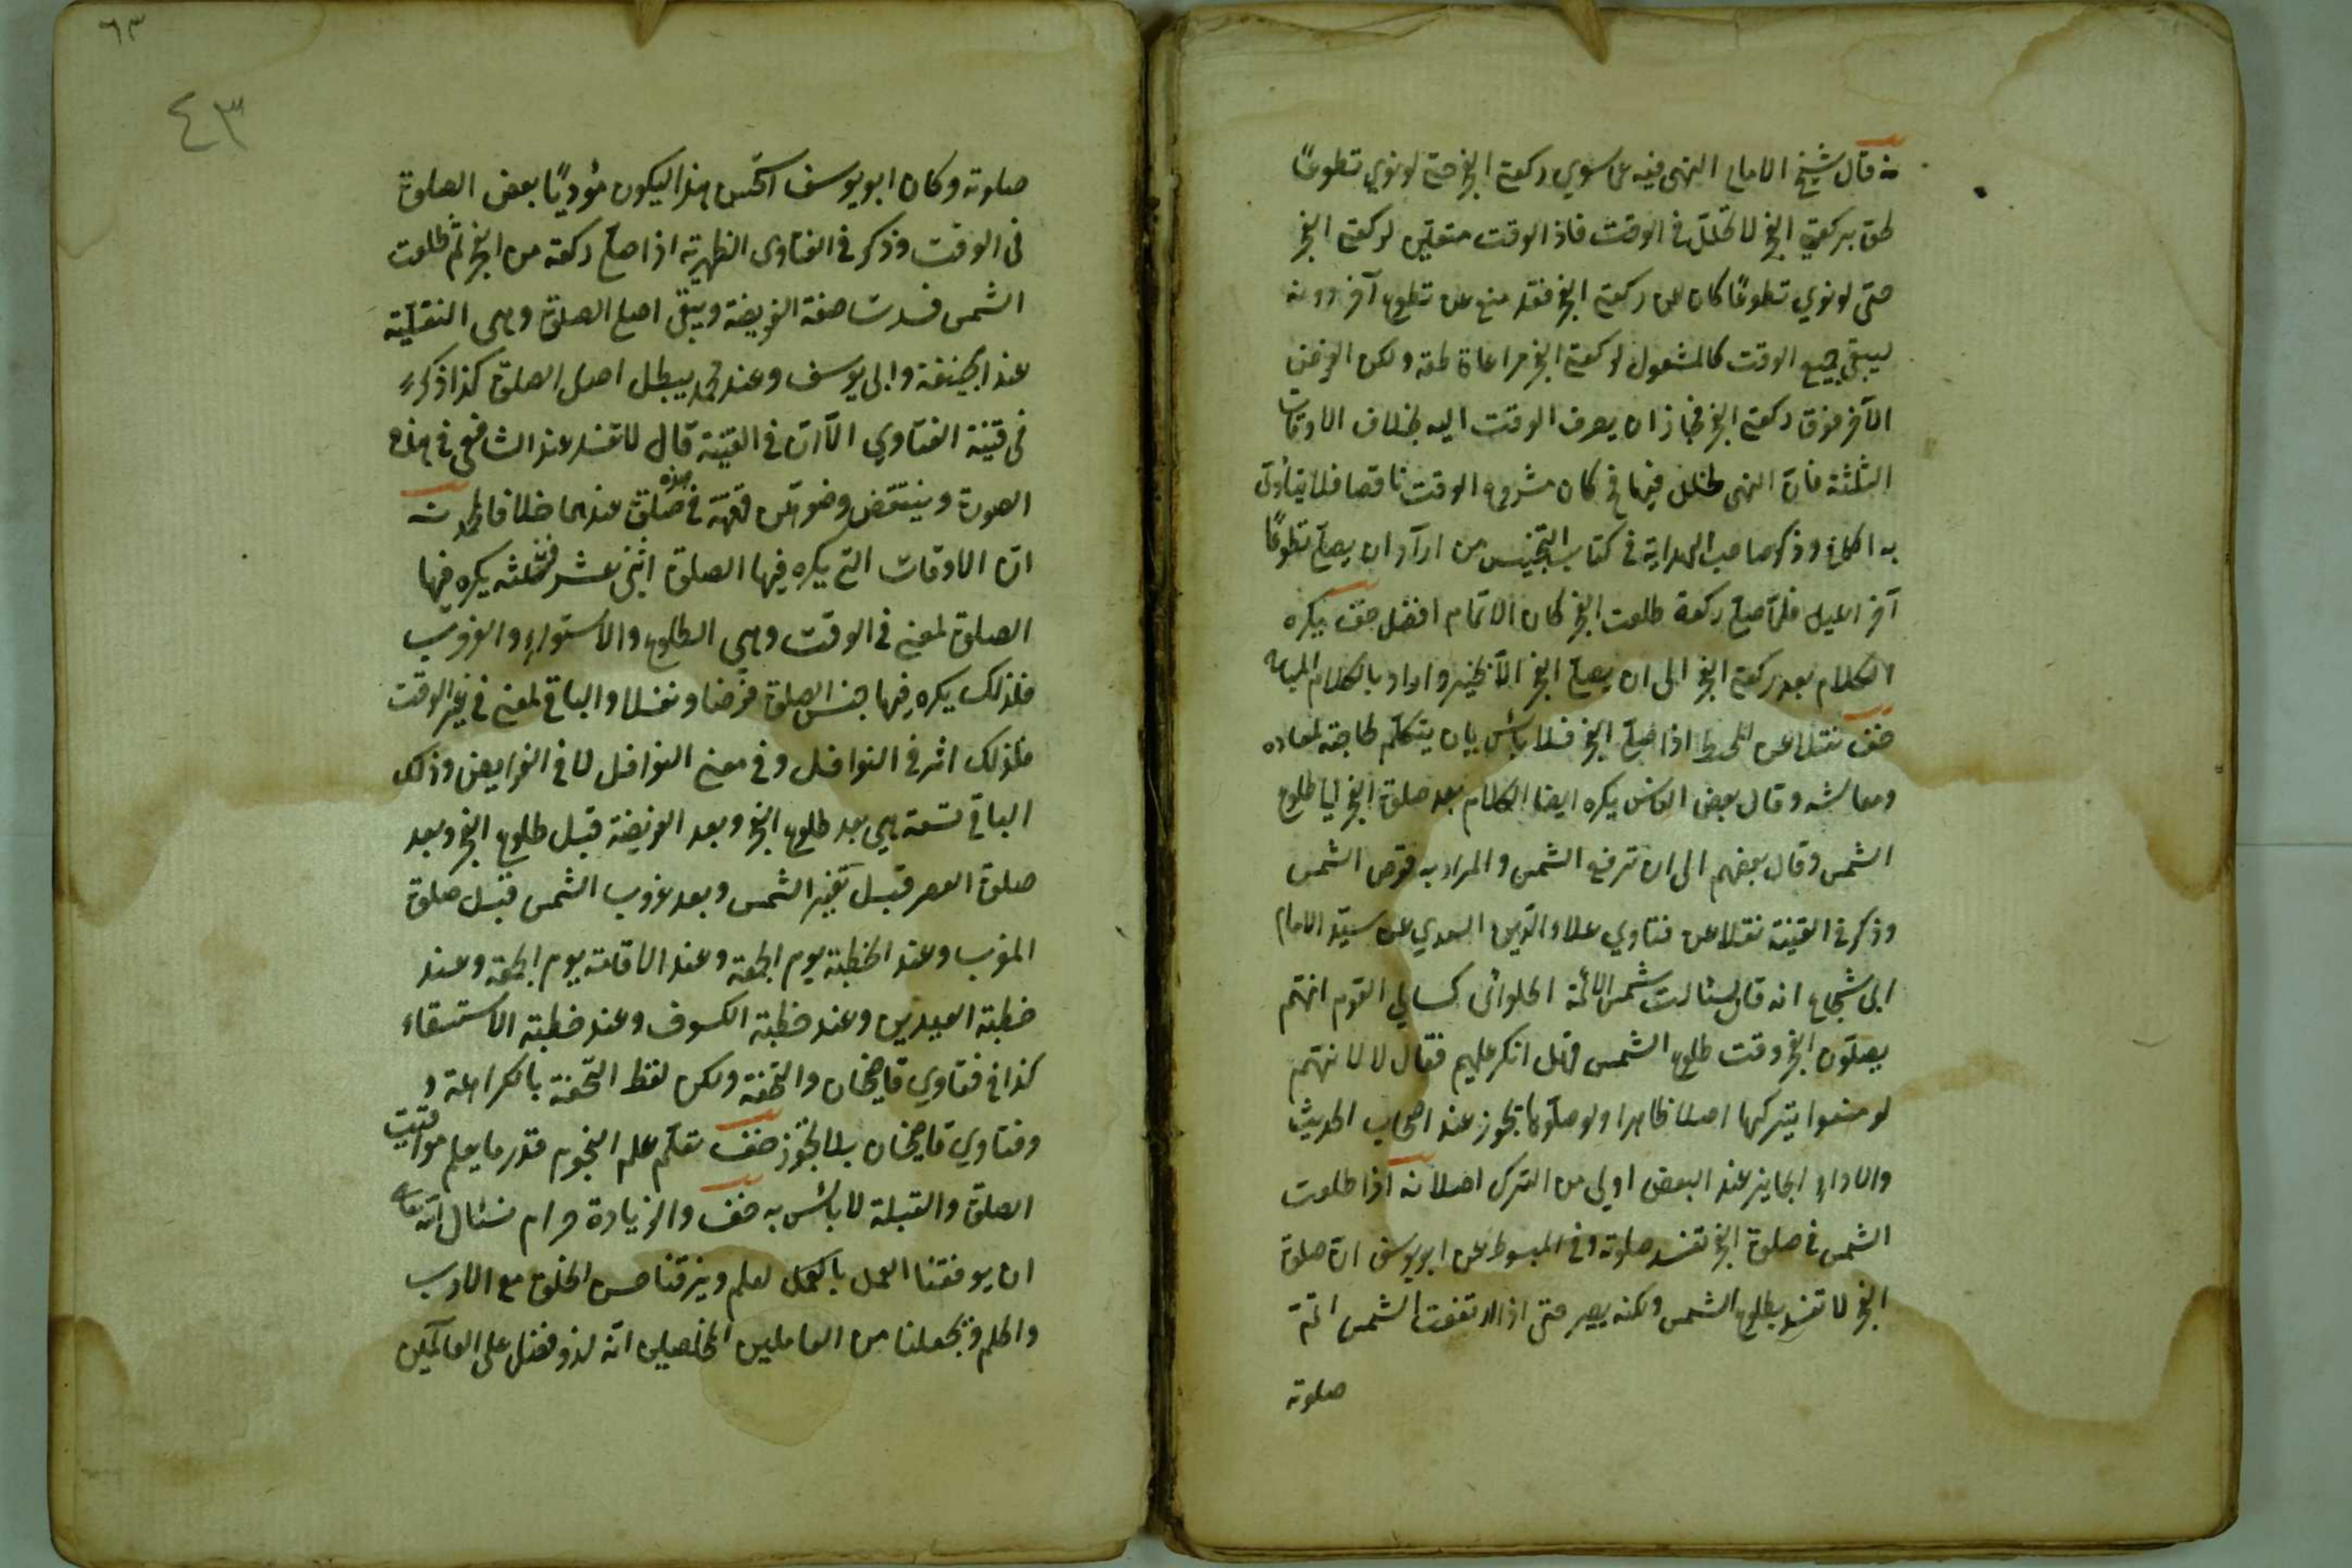 نه قال شيخ الامام النهى فيه عما سوي ركعتي الفجر حتى لو نوي تطوعًا
لحق بركعتي الفجر لا لخلل في الوقت فاذا الوقت متعيّن لركعتي الفجر
حتى لو نوي تطوعًا كان عن ركعتي الفجر فقد منع عن تطوع آخر دونه
ليبقى جميع الوقت كالمشغول لركعتي الفجر مراعاة لحقه ولكن الفرض
الآخر فوق ركعتي الفجر فجاز ان يصرف الوقت اليه بخلاف الاوقات
الثلثة فان النهى لخلل فيها في كان مشروع الوقت ناقصا فلا يتأدى
به الكامل وذكر صاحب الهداية في كتاب التجنيس من اراد ان يصلي تطوعًا
آخر الليل فلما صلّى ركعة طلعت الفجر كان الاتمام افضل حف يكره
الكلام بعد ركعتي الفجر الى ان يصلي الفجر الا بخير واراد بالكلام المباح
حف نقلا عن المحيط اذا صلّى الفجر فلا بأس بان يتكلّم لحاجته لمعاده
ومعاشه وقال بعض الناس يكره ايضا الكلام بعد صلوة الفجر الى طلوع
الشمس وقال بعضهم الى ان ترفع الشمس والمراد به قرص الشمس
وذكر في القنية نقلا عن فتاوي علاء الدين السعدي عن سيّد الامام
ابى شجاع انه قال سئالت شمس الائمّة الحلوائى كسالى القوم انهم
يصلّون الفجر وقت طلوع الشمس فهل انكر عليهم فقال لا لانهم
لو منعوا يتركها اصلا ظاهرا ولو صلّوها تجوز عند اصحاب الحديث
والاداء الجايز عند البعض اولي من الترك اصلا نه اذا طلعت
الشمس في صلوة الفجر تفسد صلوته وفي المبسوط عن ابو يوسف ان صلوة
الفجر لا تفسد بطلوع الشمس ولكنه يصبر حتى اذا ارتفعت الشمس اتمّ
صلوته
٦٣
٤٣
صلوته وكان ابو يوسف استحسن هذا ليكون مؤديًا بعض الصلوة
فى الوقت وذكر في الفتاوى الظهيرية اذا صلّى ركعة من الفجر ثم طلعت
الشمس فسدت صفة الفريضة ويبقى اصل الصلوة وهى النفلية
عند ابيحنيفة وابى يوسف وعند محمد يبطل اصل الصلوة كذا ذكر
فى قنية الفتاوي الآان في القنية قال لا تفسد عند الشافعى في هذه
الصورة وينتقض وضوء من قهقه في هذه صلوة عندهما خلافا لمحمد نه
انّ الاوقات التي يكره فيها الصلوة اثنى عشر فثلثه يكره فيها
الصلوة لمعنى في الوقت وهى الطلوع والاستواء والغروب
فلذلك يكره فيها جنس الصلوة فرضا ونفلا والباقي لمعنى في غير الوقت
فلذلك اثر في النوافل وفي معنى النوافل لا في الفرايض وذلك
الباقي تسعة هي بعد طلوع الفجر وبعد الفريضة قبل طلوع الفجر وبعد
صلوة العصر قبل تغيّر الشمس وبعد غروب الشمس قبل صلوة
المغرب وعند الخطبة يوم الجمعة وعند الاقامة يوم الجمعة وعند
خطبة العيدين وعند خطبة الكسوف وعند خطبة الاستسقاء
كذا في فتاوي قاضيخان والتحفة ولكن لفظ التحفة بالكراهة و
وفتاوي قاضيخان بلا تجوز حف تعلّم علم النجوم قدر ما يعلم مواقيت
الصلوة والقبلة لا بأس به حف والزيادة حرام نسئال الله تعالى
ان يوفقنا العمل بالعمل لعلم ويرزقنا حسن الخلق مع الادب
والحلم ويجعلنا من العاملين المخلصين انّه لذو فضل على العالمين